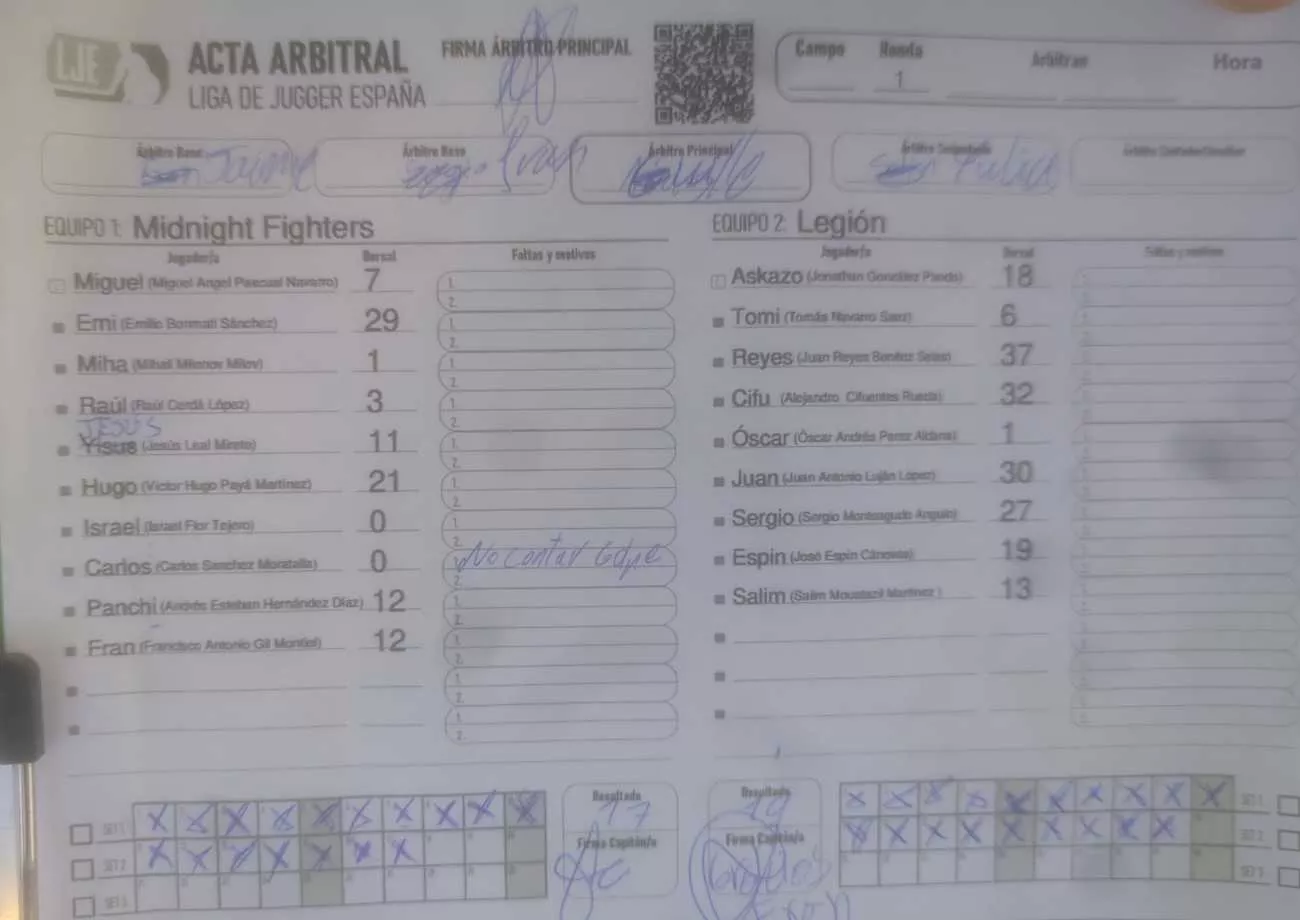 LJE
ACTA ARBITRAL
LIGA DE JUGGER ESPAÑA
FIRMA ÁRBITRO PRINCIPAL
Campo Ronda Arbitran Hora
1
Árbitro Base Árbitro Base Árbitro Principal
Jaime Fran
EQUIPO 1: Midnight Fighters
Jugador/a Dorsal Faltas y motivos
Miguel (Miguel Angel Pascual Navarro) 7 1. 2.
Emi (Emilio Bonmatí Sánchez) 29 1. 2.
Miha 1 1. 2.
Raúl (Raúl Cerdá López) 3 1. 2.
JESÚS
Yisus (Jesús Leal Mireto) 11 1. 2.
Hugo (Victor Hugo Payá Martínez) 21 1. 2.
Israel (Israel Flor Tejero) 0 1. 2.
Carlos (Carlos Sanchez Moratalla) 0 1. No contar golpe 2.
Panchi (Andrés Esteban Hernández Díaz) 12 1. 2.
Fran (Francisco Antonio Gil Montiel) 12 1. 2.
1. 2.
1. 2.
EQUIPO 2: Legión
Jugador/a Dorsal Faltas y motivos
Askazo (Jonathan González Pardo) 18
Tomi (Tomás Navarro Saez) 6
Reyes (Juan Reyes Benítez Seiso) 37
Cifu (Alejandro Cifuentes Rueda) 32
Óscar (Óscar Andrés Perez Aldana) 1
Juan (Juan Antonio Luján López) 30
Sergio (Sergio Monteagudo Anguix) 27
Espin (José Espín Cánovas) 19
Salim (Salim Martínez) 13
SET 1 X X X X X X X X X X
SET 2 X X X X X X X
SET 3
Resultado
17
Firma Capitán/a
Resultado
19
Firma Capitán/a
X X X X X X X X X X SET 1
X X X X X X X X X SET 2
SET 3